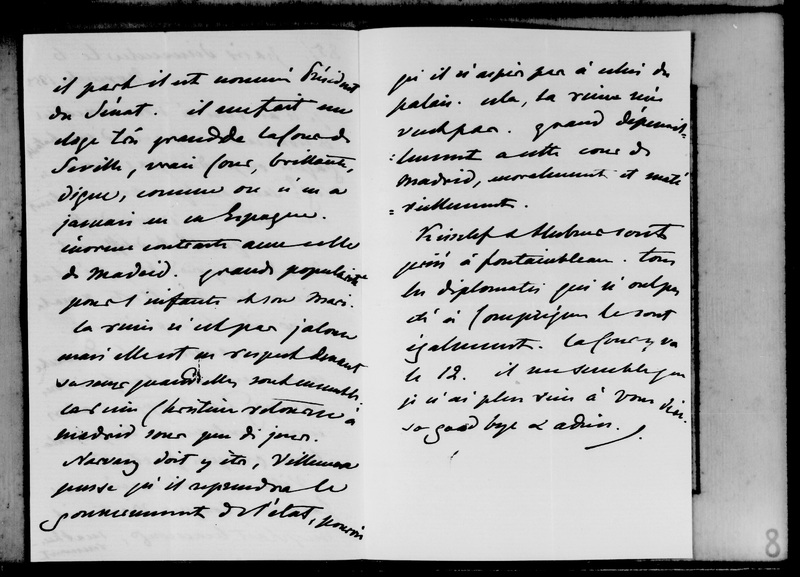 il part il est nommé Président
du Sénat. il me fait un
éloge très grand de la Cour de
Séville, vraie Cour, brillante,
digne, comme on n'en a
jamais eu en Espagne.
énorme contraste avec celle
de Madrid. grande popularité
pour l'infante et son mari.
la reine n'est pas jalouse
mais elle est en respect devant
sa sœur quand elles sont ensemble.
la reine Christine retourne à
Madrid sous peu de jours.
Narvaez doit y être,
pense qu'il reprendra le
gouvernement de l'état, pourvu
qu'il n'aspire pas à celui du
palais. cela, la reine n'en
veut pas. grand dépouil-
=lement à cette cour de
Madrid, moralement et maté
=riellement.
Kisselef & Hubner sont
priés à fontainebleau. tous
les diplomates qui n'ont pas
été à Compiègne le sont
également. la Cour y va
le 12. il me semble que
je n'ai plus rien à vous dire.
so good bye & adieu.
8